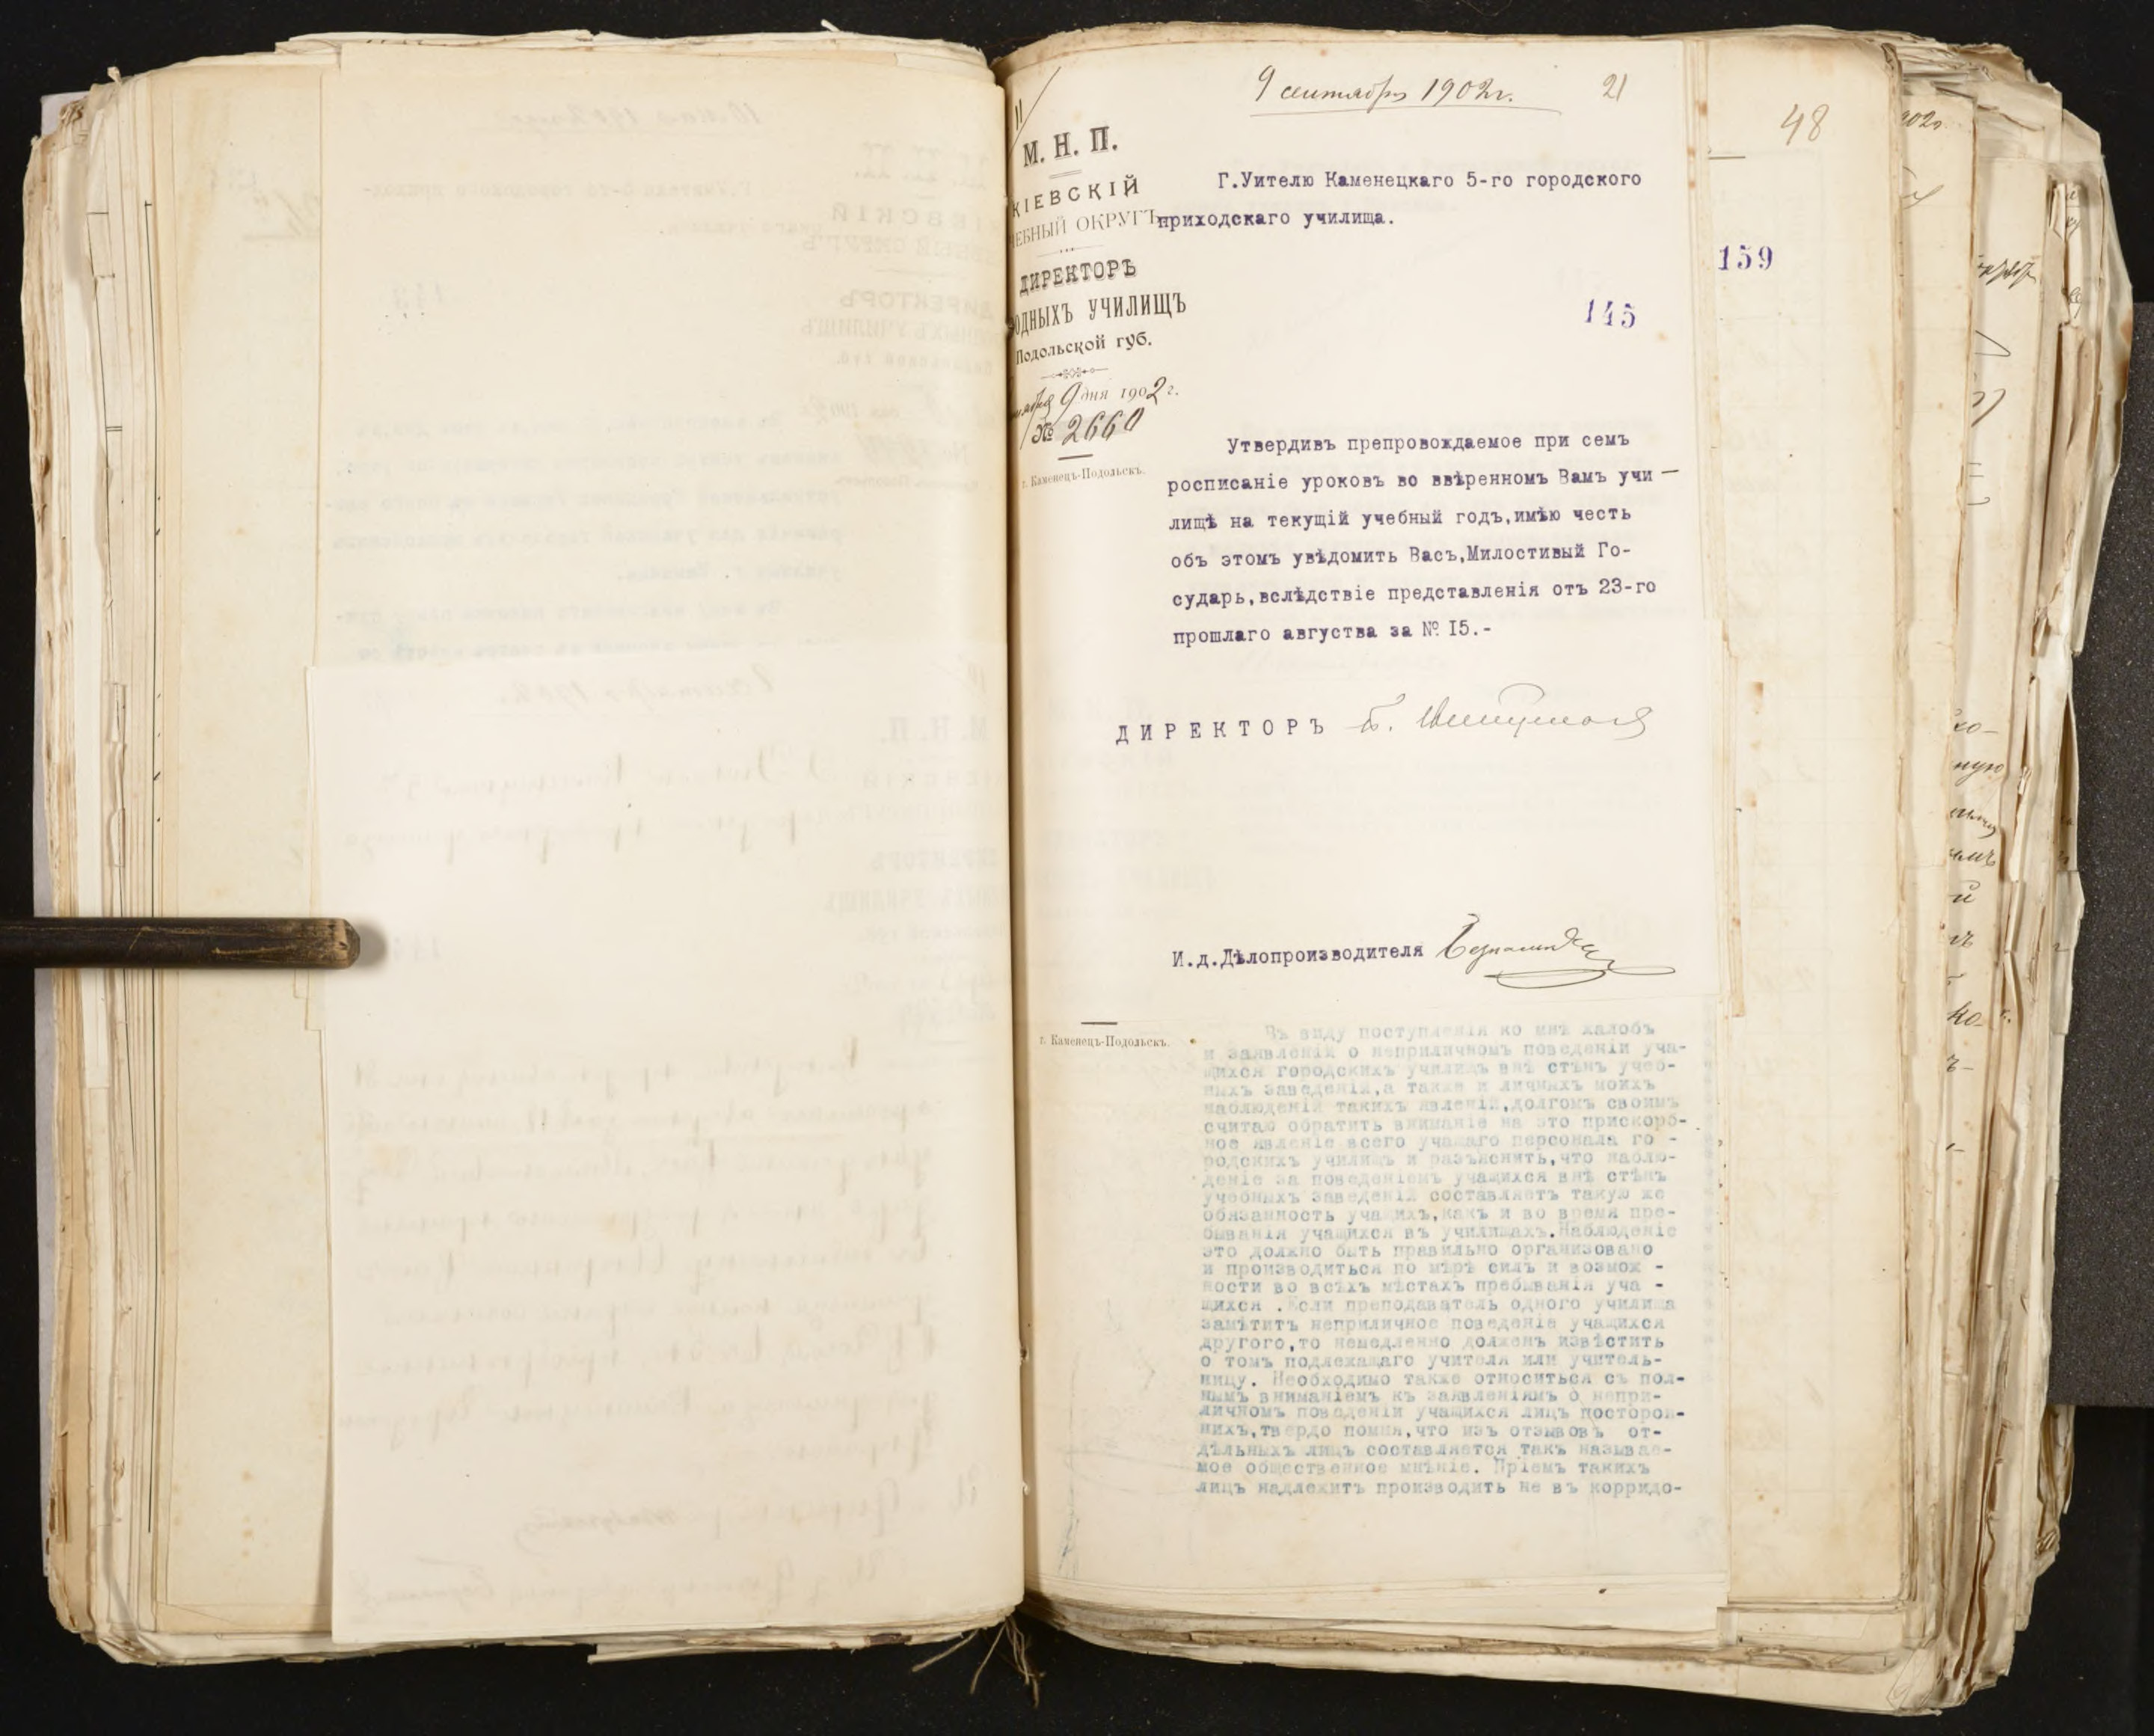 9 сентября 1902г.
21
48
М. Н. П.
КІЕВСКІЙ
ЕБНЫЙ ОКРУГЪ
ДИРЕКТОРЪ
ОДНЫХЪ УЧИЛИЩЪ
Подольской губ.
9 дня 1902 г.
№ 2660
г. Каменецъ-Подольскъ.
Г.Уителю Каменецкаго 5-го городского
приходскаго училища.
159
145
Утвердивъ препровождаемое при семъ
росписаніе уроковъ во ввѣренномъ Вамъ учи —
лищѣ на текущій учебный годъ,имѣю честь
объ этомъ увѣдомить Васъ,Милостивый Го-
сударь,вслѣдствіе представленія отъ 23-го
прошлаго августва за № I5.-
ДИРЕКТОРЪ
И.д.Дѣлопроизводителя
г. Каменецъ-Подольскъ.
Въ виду поступленія ко мнѣ жалобъ
и заявленій о неприличномъ поведеніи уча-
щихся городскихъ училищъ внѣ стѣнъ учеб-
ныхъ заведеній,а также и личныхъ моихъ
наблюденій такихъ явленій,долгомъ своимъ
считаю обратить вниманіе на это прискорб-
ное явленіе всего учащаго персонала го -
родскихъ училищъ и разъяснить,что наблю-
деніе за поведеніемъ учащихся внѣ стѣнъ
учебныхъ заведеній составляетъ такую же
обязанность учащихъ,какъ и во время пре-
быванія учащихся въ училищахъ.Наблюденіе
это должно быть правильно организовано
и производиться по мѣрѣ силъ и возмож -
ности во всѣхъ мѣстахъ пребыванія уча -
щихся .Если преподаватель одного училища
замѣтитъ неприличное поведеніе учащихся
другого,то немедленно долженъ извѣстить
о томъ подлежащаго учителя или учитель-
ницу. Необходимо также относиться съ пол-
нымъ вниманіемъ къ заявленіямъ о непри-
личномъ поведеніи учащихся лицъ посторон-
нихъ,твердо помня,что изъ отзывовъ от-
дѣльныхъ лицъ составляется такъ называе-
мое общественное мнѣніе. Пріемъ такихъ
лицъ надлежитъ производить не въ корридо-